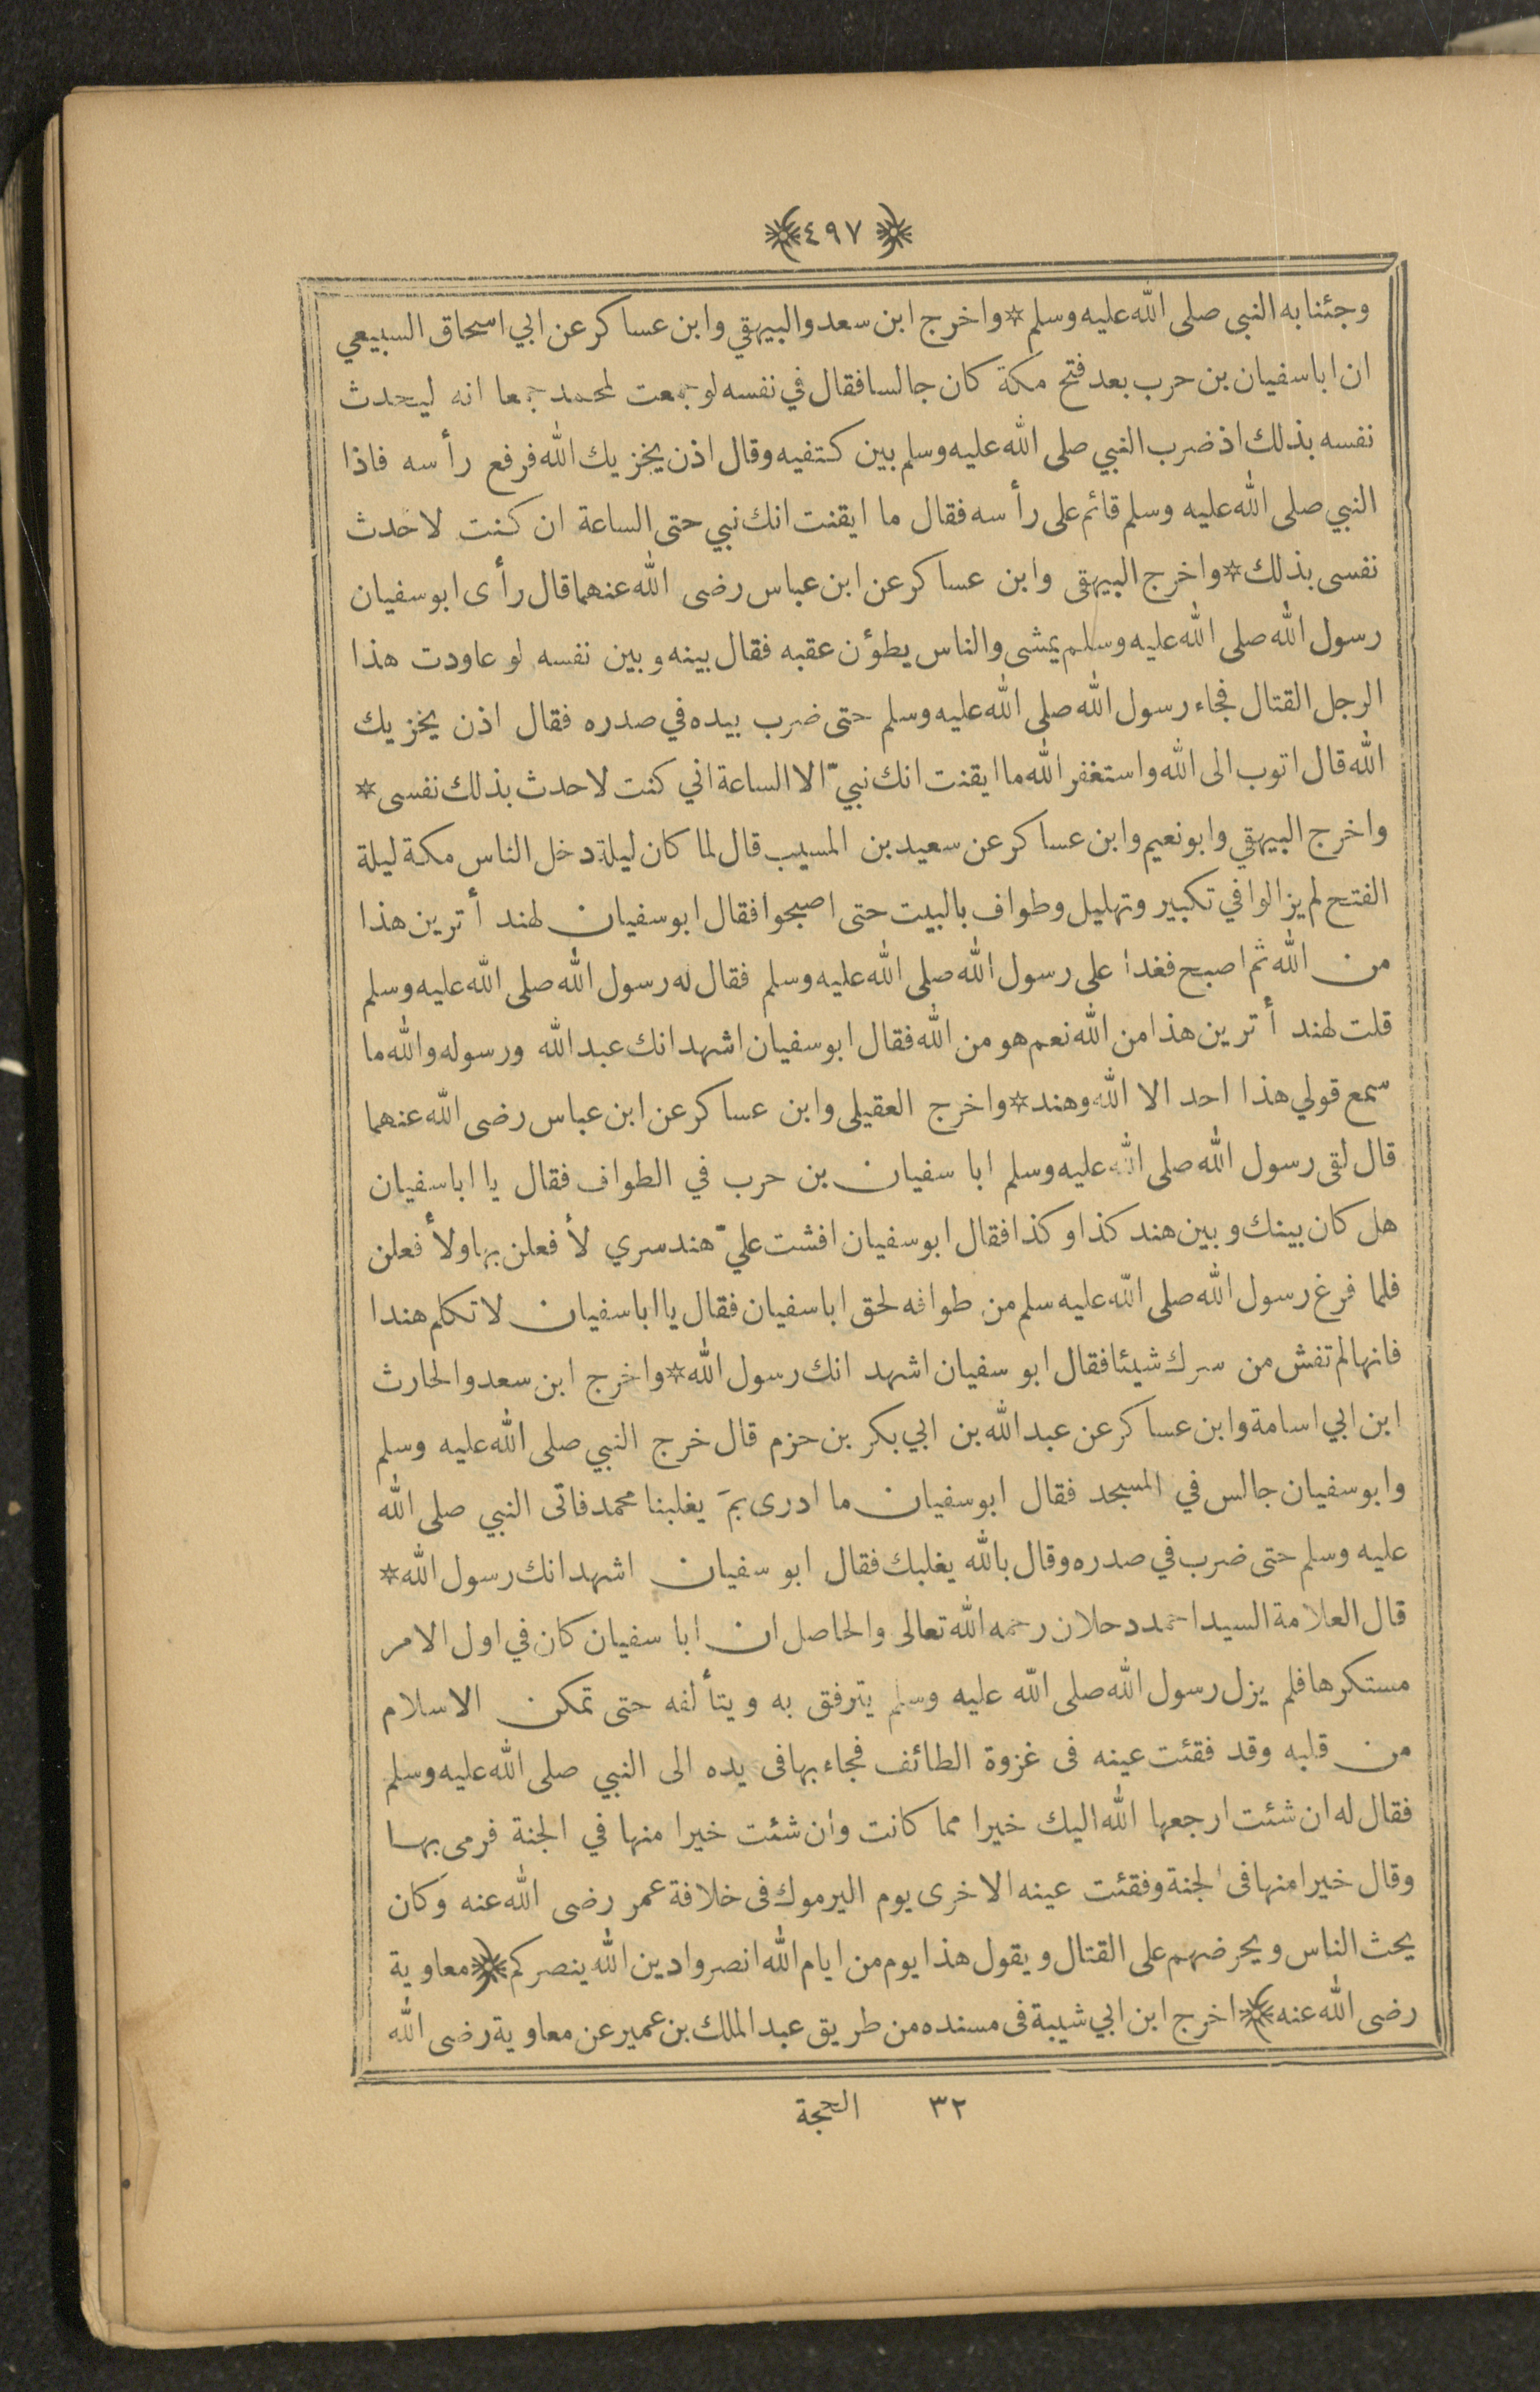 ﴿٤٩٧﴾
وجئنا به النبى صلى الله عليه وسلم * واخرج ابن سعد والبيهقي وابن عساكر عن ابي اسحاق السبيعي
ان ابا سفيان بن حرب بعد فتح مكة كان جالسا فقال في نفسه لو جمعت لمحمد جمعا انه ليحدث
نفسه بذلك اذ ضرب النبي صلى الله عليه وسلم بين كتفيه وقال اذن يخزيك الله فرفع رأسه فاذا
النبي صلى الله عليه وسلم قائم على رأسه فقال ما ايقنت انك نبي حتى الساعة ان كنت لاحدث
نفسى بذلك * واخرج البيهقى وابن عساكر عن ابن عباس رضى الله عنهما قال رأى ابو سفيان
رسول الله صلى الله عليه وسلم يمشى والناس يطؤن عقبه فقال بينه وبين نفسه لو عاودت هذا
الرجل القتال فجاء رسول الله صلى الله عليه وسلم حتى ضرب بيده في صدره فقال اذن يخزيك
الله قال اتوب الى الله واستغفر الله ما ايقنت انك نبيّ الا الساعة اني كنت لاحدث بذلك نفسى *
واخرج البيهقي وابو نعيم وابن عساكر عن سعيد بن المسيب قال لما كان ليلة دخل الناس مكة ليلة
الفتح لم يزالوا في تكبير وتهليل وطواف بالبيت حتى اصبحوا فقال ابو سفيان لهند أترين هذا
من الله ثم اصبح فغدا على رسول الله صلى الله عليه وسلم فقال له رسول الله صلى الله عليه وسلم
قلت لهند أترين هذا من الله نعم هو من الله فقال ابو سفيان اشهد انك عبد الله ورسوله والله ما
سمع قولي هذا احد الا الله وهند * واخرج العقيلى وابن عساكر عن ابن عباس رضى الله عنهما
قال لقى رسول الله صلى الله عليه وسلم ابا سفيان بن حرب في الطواف فقال يا ابا سفيان
هل كان بينك وبين هند كذا وكذا فقال ابو سفيان افشت عليّ هند سري لأفعلن بها ولأفعلن
فلما فرغ رسول الله صلى الله عليه سلم من طوافه لحق ابا سفيان فقال يا ابا سفيان لا تكلم هندا
فانها لم تفش من سرك شيئا فقال ابو سفيان اشهد انك رسول الله * واخرج ابن سعد والحارث
ابن ابي اسامة وابن عساكر عن عبد الله بن ابي بكر بن حزم قال خرج النبي صلى الله عليه وسلم
وابو سفيان جالس في المسجد فقال ابو سفيان ما ادرى بمَ يغلبنا محمد فاتى النبي صلى الله
عليه وسلم حتى ضرب في صدره وقال بالله يغلبك فقال ابو سفيان اشهد انك رسول الله *
قال العلامة السيد احمد دحلان رحمه الله تعالى والحاصل ان ابا سفيان كان في اول الامر
مستكرها فلم يزل رسول الله صلى الله عليه وسلم يترفق به ويتألفه حتى تمكن الاسلام
من قلبه وقد فقئت عينه فى غزوة الطائف فجاء بها فى يده الى النبي صلى الله عليه وسلم
فقال له ان شئت ارجعها الله اليك خيرا مما كانت وان شئت خيرا منها في الجنة فرمى بها
وقال خيرا منها فى الجنة وفقئت عينه الاخرى يوم اليرموك فى خلافة عمر رضى الله عنه وكان
يحث الناس ويحرضهم على القتال ويقول هذا يوم من ايام الله انصروا دين الله ينصركم ﴿ معاوية
رضى الله عنه ﴾ اخرج ابن ابي شيبة فى مسنده من طريق عبد الملك بن عمير عن معاوية رضى الله
٣٢ الحجة